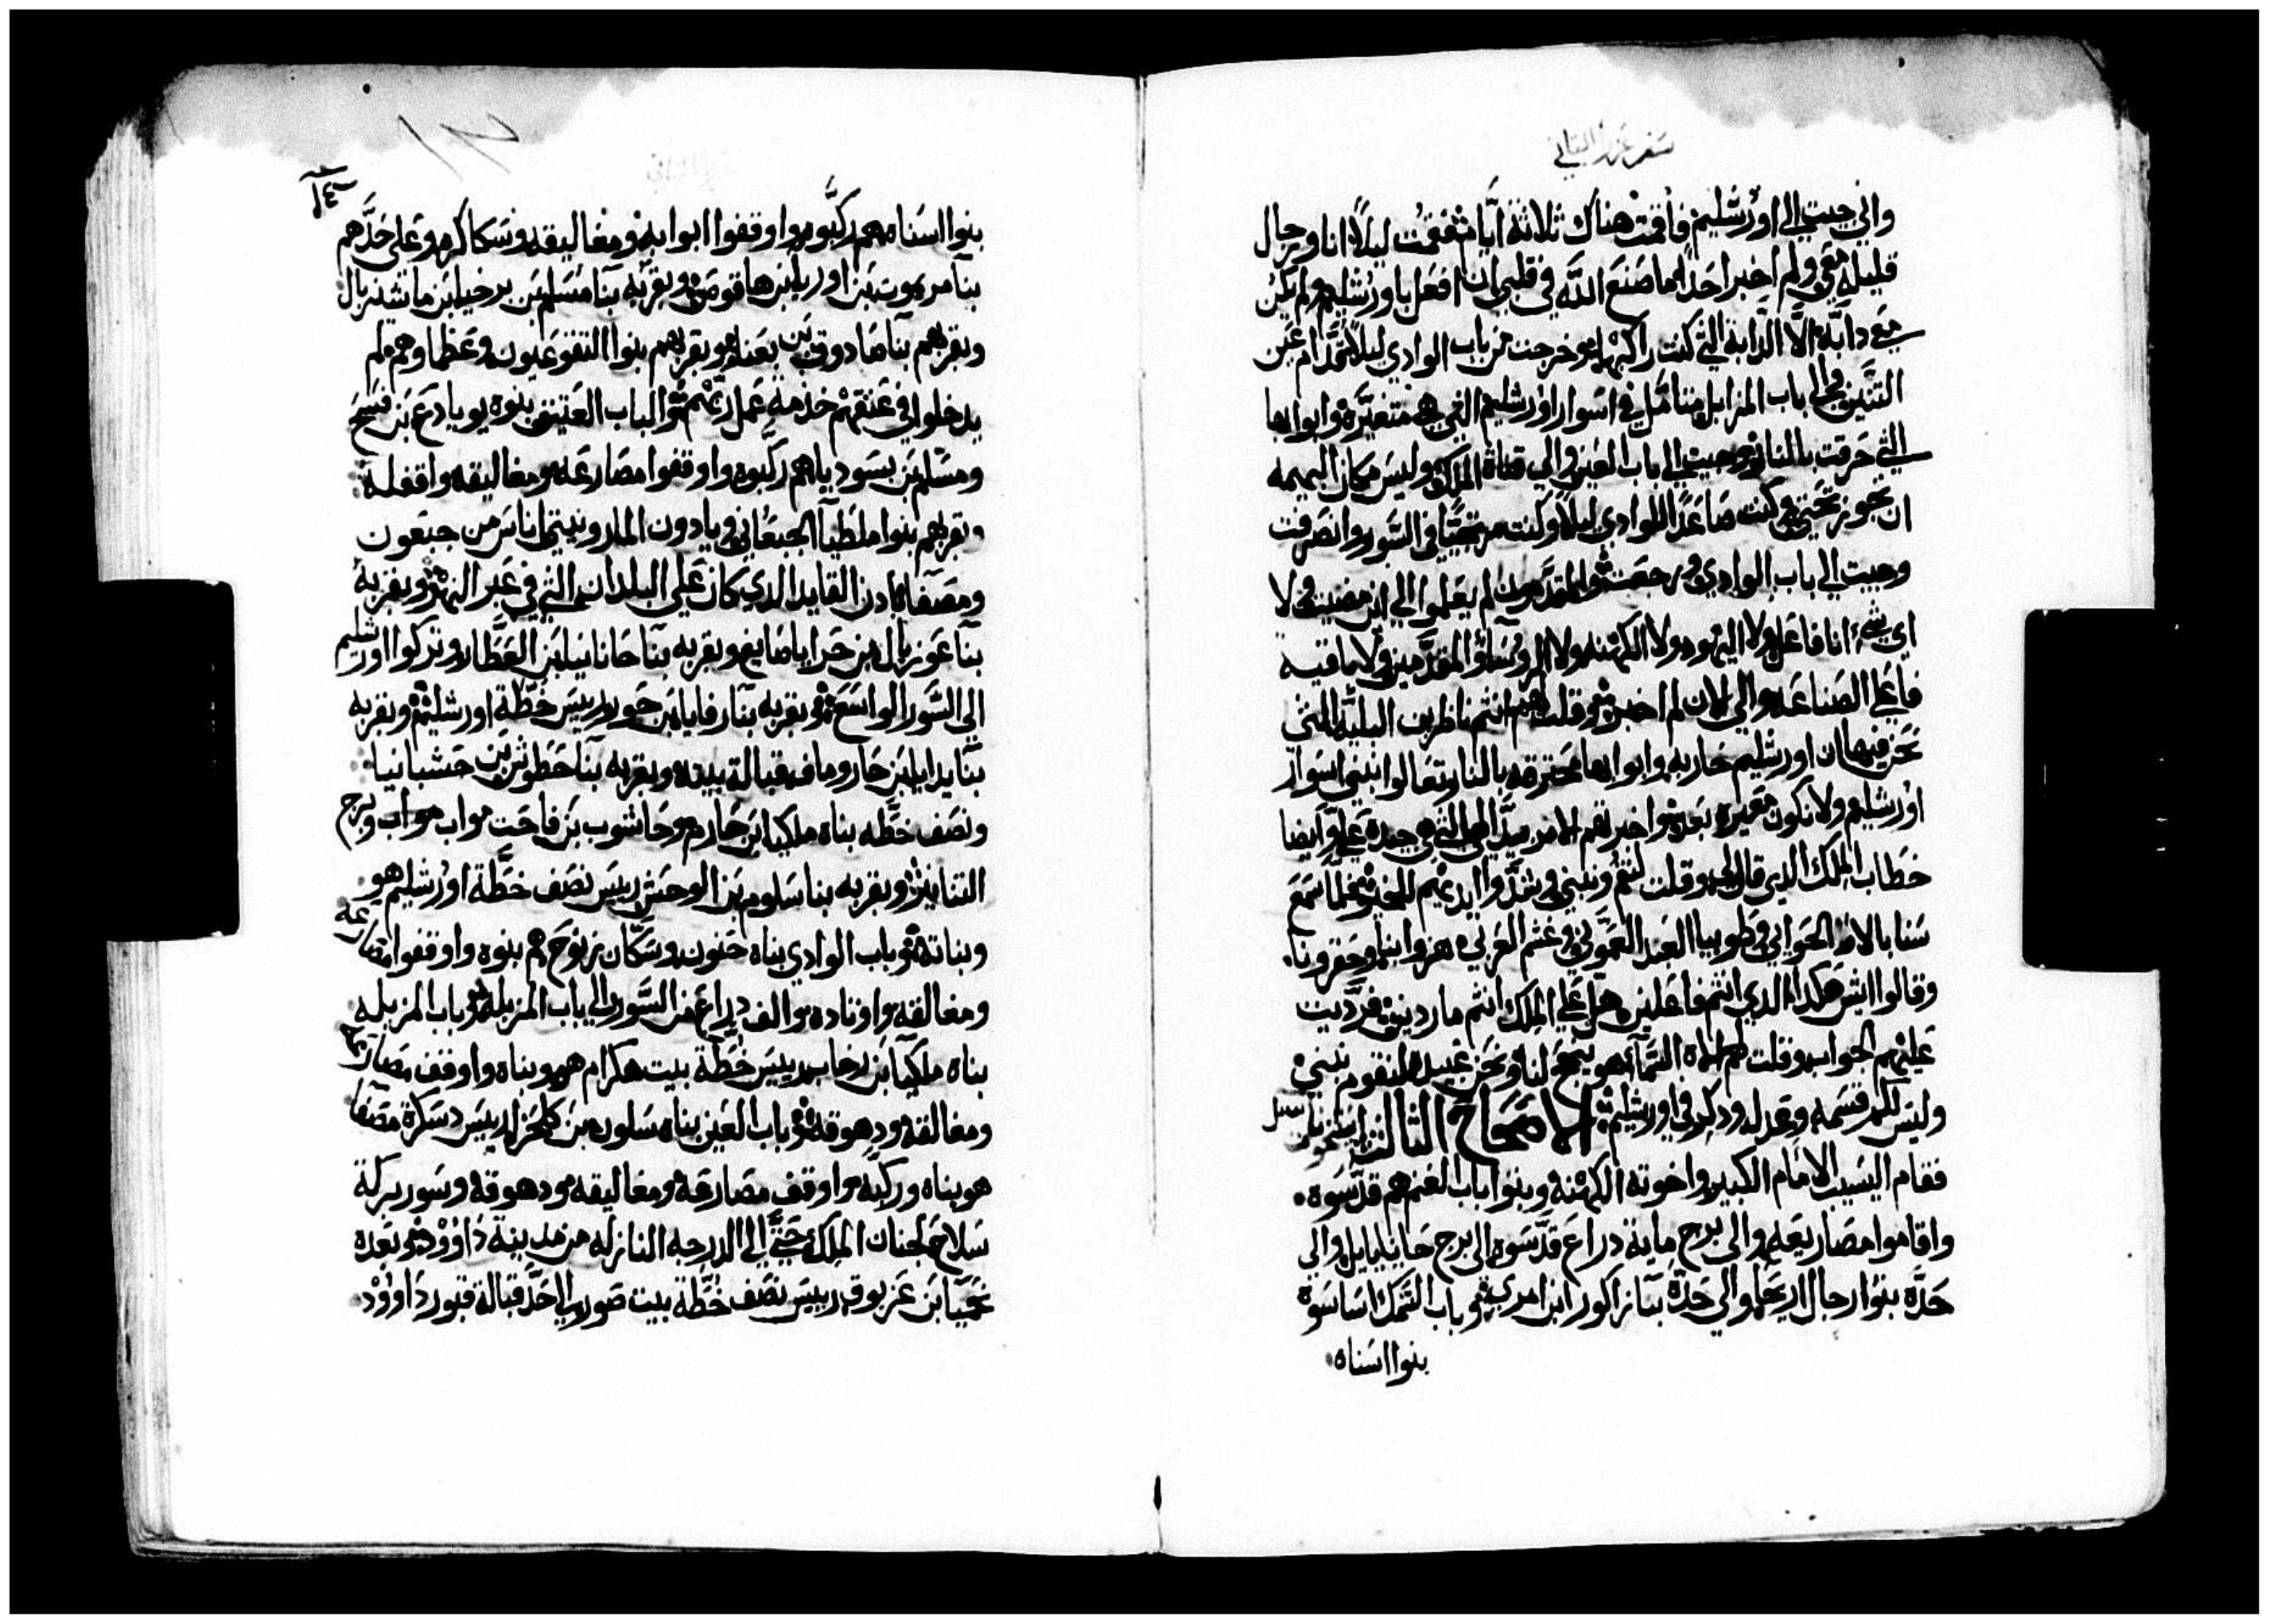 سفر عزرا الثاني
واني جيت الي اورشليم فاقمت هناك ثلاثة ايام فقمت ليلا انا ورجال
قليله معي ولم اخبر احدا ما صنع الله في قلبي ان افعل باورشليم ولم يكن
معي دابه الا الدابة التي كنت راكبها وخرجت من باب الوادي ليلا قدام عين
التنين والي باب المزابل متامل في اسوار اورشليم التي هي متغيره وابوابها
التي حرقت بالنار وجيت الي باب العين والي قناة الملك وليس مكان البهيمه
ان تجوز تحتي وكنت صاعدا الوادي ليلا وكنت مرتجيا في السور وانصرفت
وجيت الي باب الوادي ورجعت والمقدمون لم يعلموا الي اين مضيت ولا
اي شيء انا فاعل ولا اليهود ولا الكهنه ولا الروساؤ المقدمين ولا باقيه
فاعلي الصناعه والي الان لم اخبرهم وقلت لهم انتم ناظرين البلية التي
نحن فيها ان اورشليم خاربه وابوابها محترقه بالنار تعالوا نبني اسوار
اورشليم ولا نكون معيره بعد واخبرتهم الامر يد الهي التي هي جيدة علي وايضا
خطاب الملك الدي قال لي وقلت لنقم ونبني وشدوا ايديهم للخير فلما سمع
سنابالاط الحواني وطوبيا العبد العموني وغشم العربي هزوا بنا وحقرونا
وقالوا ايش هكدا الدي انتم فاعلين هل علي الملك انتم ماردين فرديت
عليهم الجواب وقلت لهم الاه السماء هو ينجح لنا ونحن عبيده لنقوم نبني
وليس لكم قسمه وعدل ودكر في اورشليم الاصحاح الثالث
فقام اليسيب الامام الكبير واخوته الكهنه وبنوا باب الغنم هم قدسوه
واقاموا مصاريعه والي برج ماية دراع قدسوه الي برج حانانيايل والي
حدة بنوا رجال اريحا والي حدة بنا زاكور ابن امري وباب السمك اساسوة
بنوا اسناه
١٤٠
بنوا اسناه هم ركبوه واوقفوا ابوابه ومغاليقه وسكاكره وعلي حدهم
بنا مريموت بن اوريا بن هاقوص وبقربه بنا مسلم بن برخيا بن ماشيزبال
وبقربهم بنا صادوق بن بعنا وبقربهم بنوا التقوعيون وعظماوهم لم
يدخلوا في عنقهم خدمة عمل ربهم والباب العتيق بنوه يوياداع بن فسيح
ومسلم بن بسوديا هم ركبوه واوقفوا مصارعه ومغاليقه واقفله
وبقربهم بنوا ملطيا الجبعاني ويادون المارونيتي اناس من جبعون
ومصفا كادن القايد الدي كان علي البلدان التي في عبر النهر وبقربه
بنا عوزيال بن حرايا صايغ وبقربه بنا حانانيا بن العطار وتركوا اورشليم
الي السور الواسع وبقربه بنا رفايا بن حور رييس خطة اورشليم وبقربه
بنا يدايا بن حاروماف قبالة بيته وبقربه بنا حطوش بن حشبانيا
ونصف خطه بناه ملكيا ابن حارم وحاشوب بن فاحت مواب مواب وبرج
التنانير وبقربه بنا سلوم بن الوحش رييس نصف خطة اورشليم هو
وبناته وباب الوادي بناه حنون وسكان زنوح هم بنوه واوقفوا مصارعه
ومغالقه واوتاده والف دراع من السور الي باب المزبله وباب المزبله
بناه ملكيا بن رخاب رييس خطة بيت هكرام هو بناه واوقف مصارعه
ومغالقه ودهوقه وباب العين بناه سلون بن كلحزا رييس دسكرة مصفا
هو بناه وركبه واوقف مصارعه ومغاليقه ودهوقه وسور بركة
سلاح لجنان الملك حتي الي الدرجه النازله من مدينة داوود وبعده
نحميا بن عزبوق رييس نصف خطة بيت صور الي حد قبالة قبور داوود